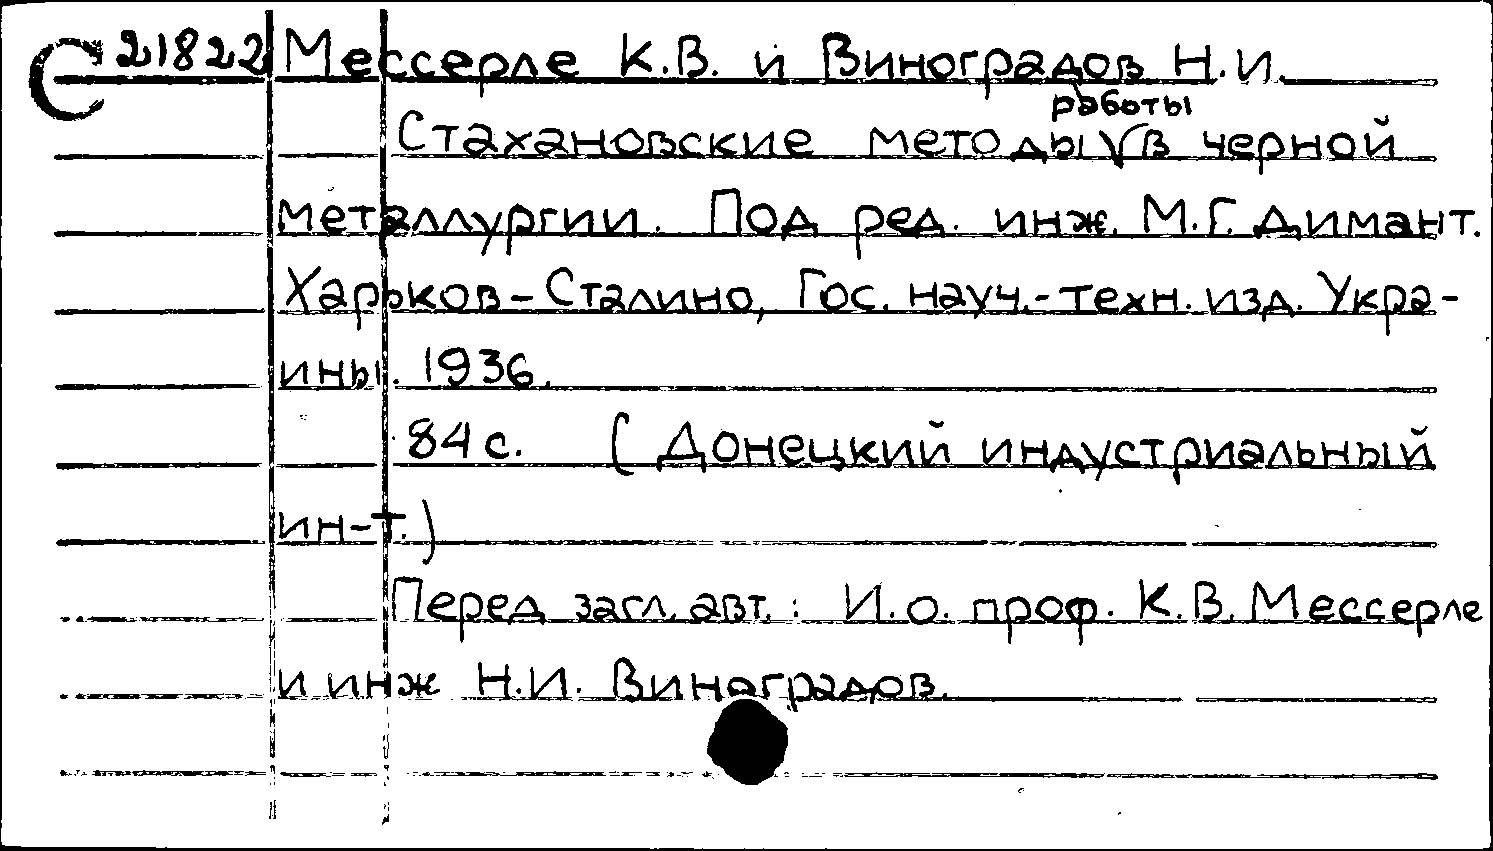 С 21822 Мессерле К.В. и Виноградов Н.И.
Стахановские методы работы в черной
металлургии. Под ред. инж. М.Г. Димант.
Харьков-Сталино, Гос. науч.-техн. изд. Укра-
ины. 1936.
84 с. (Донецкий индустриальный
ин-т.)
Перед загл. авт.: И.о. проф. К.В. Мессерле
и инж Н.И. Виноградов.